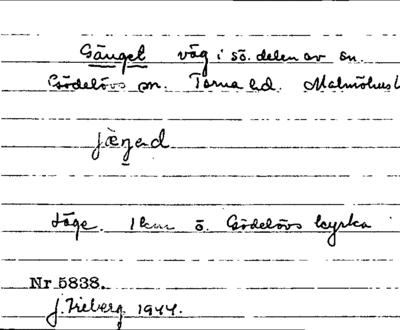 Gänget väg i sö. delen av sn.
Gödelövs sn. Torna hd. Malmöhus l
jæŋəd
Läge. 1 km ö. Gödelövs kyrka
Nr 5838.
1944.